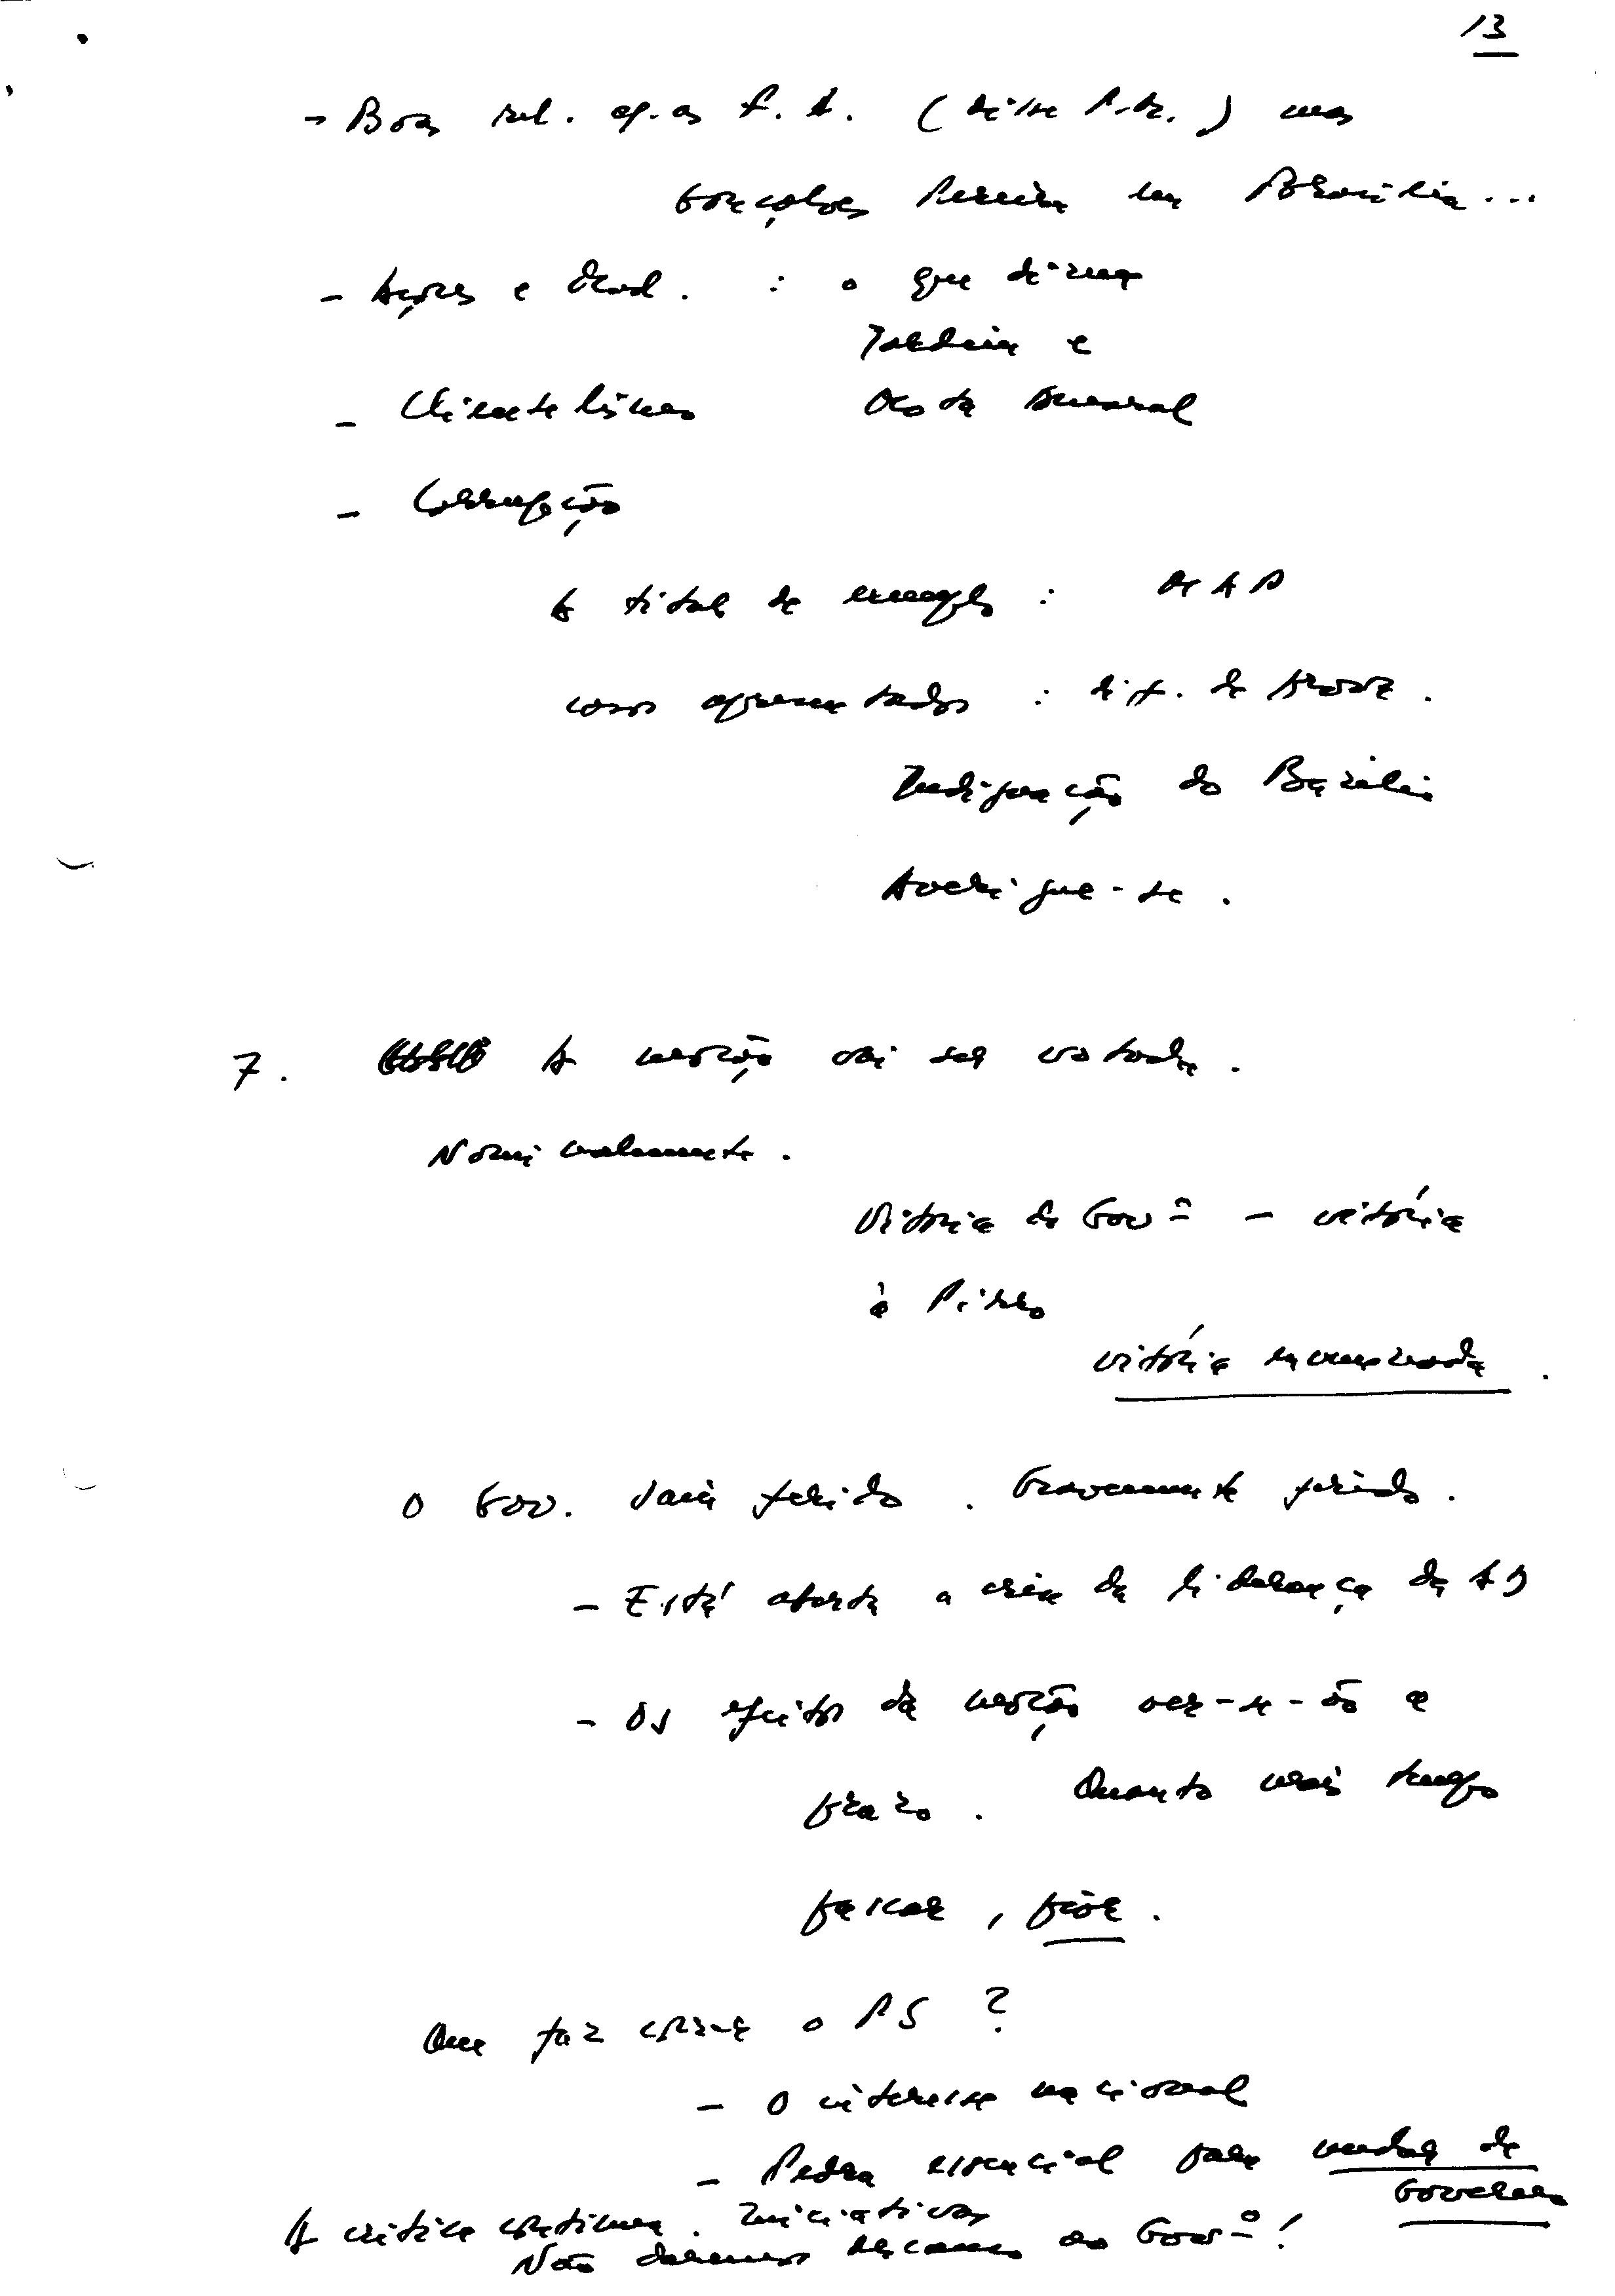 13
- Boas rel. c/. as F. A. (disse P.M.) mas
Gonçalves Pereira em Brasília...
- Açores e Mad. : o que disseram
Jardim e
- Clientelismo Mota Amaral
- Corrupção
A título de exemplo :
casos apresentados : dif. de
Indignação do Basílio
Averigue-se.
7. A moção vai ser votada.
Nominalmente.
Vitória do Govº - vitória
à Pirro
vitória envenenada.
O Gov. sairá ferido. Gravemente ferido.
- Está aberta a crise da liderança da AD
- Os efeitos da moção ver-se-ão a
prazo. Quanto mais tempo
passar, pior.
Que faz correr o PS ?
- O interesse nacional
- Pedra essencial para mudar de
Governo
A crítica continua. Iniciativas
Não daremos descanso ao Govº !